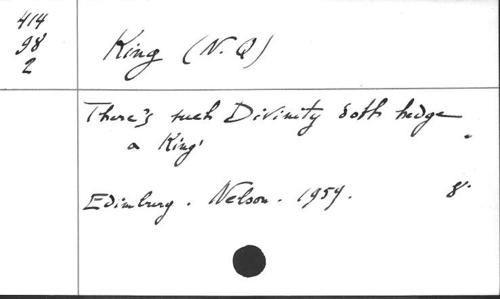 414
98
2
King (N. Q)
There's such Divinity doth hedge
a King'
Edimburg. Nelson. 1954. 8º